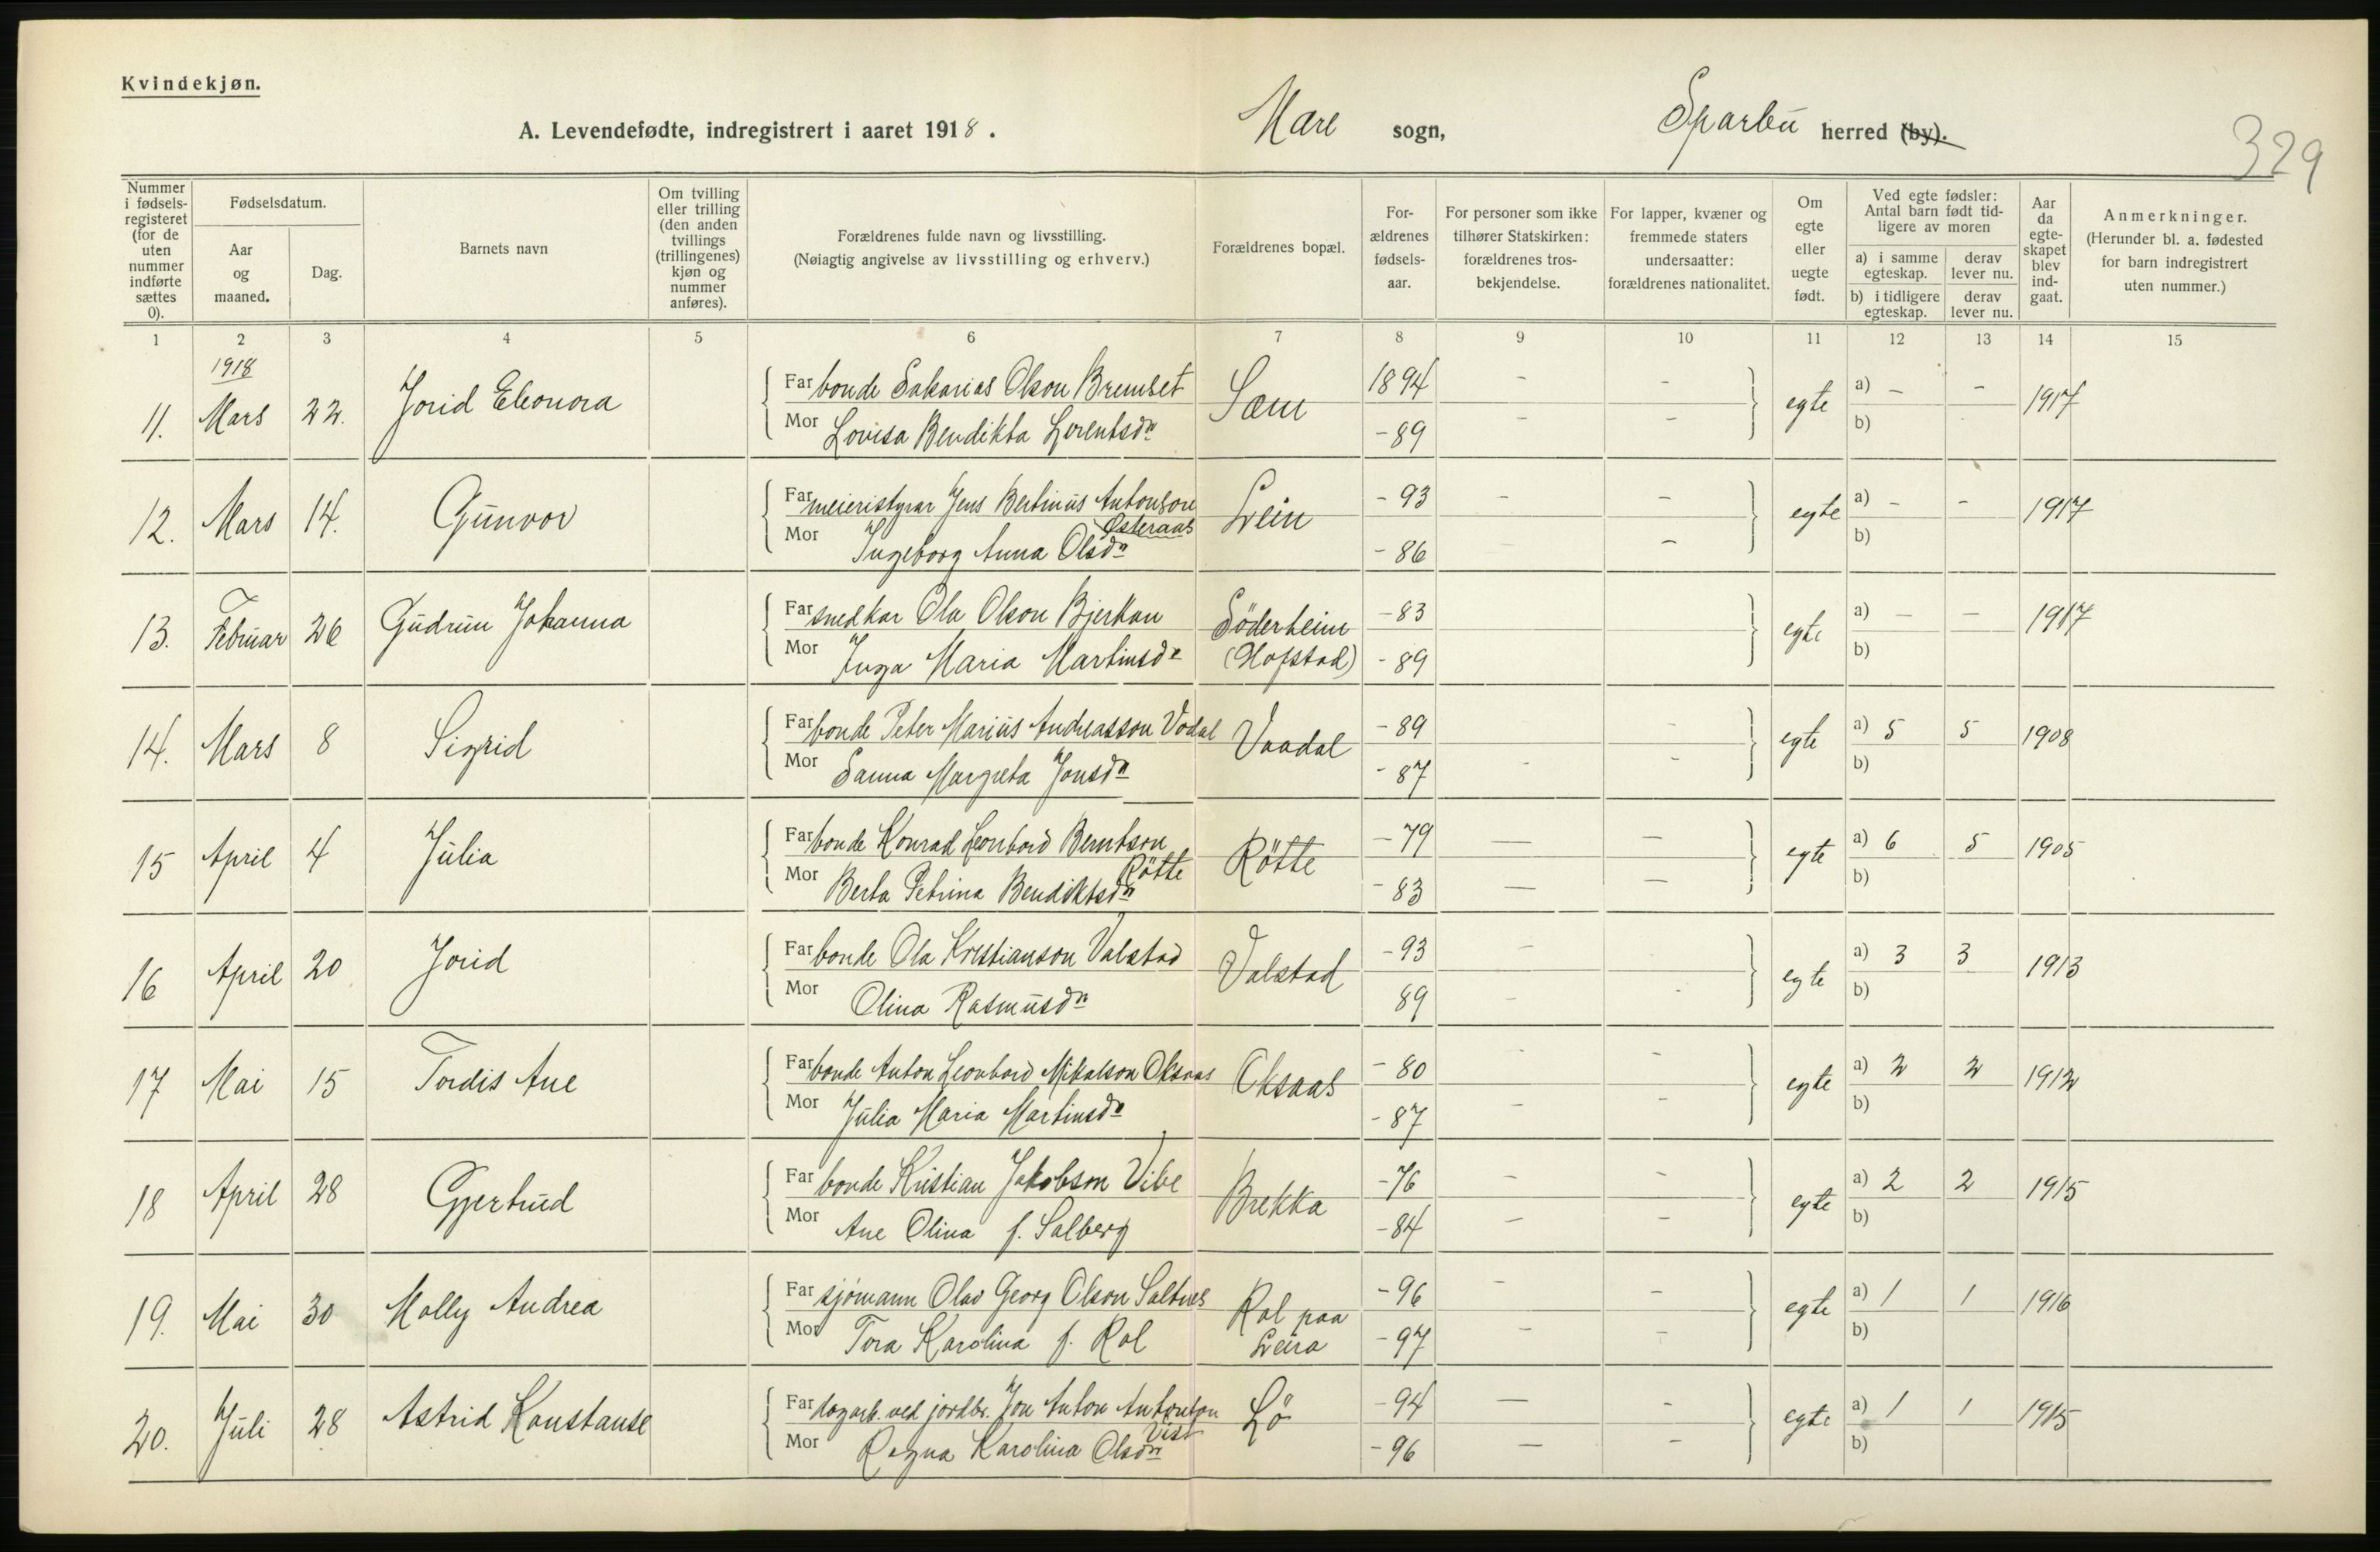 Kvindekjøn.
A. Levendefødte, indregistrert i aaret 1918. Mære sogn, Sparbu herred (by).
329
Nummer i fødselsregisteret (for de uten nummer indførte sættes 0).
Fødselsdatum.
Aar og maaned.
Dag.
Barnets navn
Om tvilling eller trilling (den anden tvillings (trillingenes) kjøn og nummer anføres).
Forældrenes fulde navn og livsstilling.
(Nøiagtig angivelse av livsstilling og erhverv.)
Forældrenes bopæl.
Forældrenes fødselsaar.
For personer som ikke tilhører Statskirken: forældrenes trosbekjendelse.
For lapper, kvæner og fremmede staters undersaatter: forældrenes nationalitet.
Om egte eller uegte født.
Ved egte fødsler: Antal barn født tidligere av moren
a) i samme egteskap.
derav lever nu.
b) i tidligere egteskap.
derav lever nu.
Aar da egteskapet blev indgaat.
Anmerkninger.
(Herunder bl. a. fødested for barn indregistrert uten nummer.)
1 2 3 4 5 6 7 8 9 10 11 12 13 14 15
1918
11. Mars 22. Jorid Eleonora Far bonde Sakarias Olson Bremset Sæm 1894 - - egte a) - - 1917
Mor Lovisa Bendikta Lorentsdr -89 - - b)
12. Mars 14. Gunvor Far meieristyrar Jens Bertinus Antonson Østeraas Lein -93 - - egte a) - - 1917
Mor Ingeborg Anna Olsdr -86 - - b)
13. Februar 26 Gudrun Johanna Far snedkar Ola Olson Bjerkan Söderheim (Hofstad) -83 egte a) - - 1917
Mor Inga Maria Martinsdr -89 b)
14. Mars 8 Sigrid Far bonde Peter Marius Andreasson Vodal Vaadal -89 - egte a) 5 5 1908
Mor Sanna Margreta Jonsdr -87 - - b)
15 April 4 Julia Far bonde Konrad Leonhard Berntson Rötte Rötte -79 - - egte a) 6 5 1905
Mor Berta Petrina Bendiktsdr -83 - - b)
16 April 20 Jorid Far bonde Ola Kristianson Valstad Valstad -93 - - egte a) 3 3 1913
Mor Olina Rasmusdr 89 - - b)
17 Mai 15 Tordis Ane Far bonde Anton Leonhard Mikalson Oksaas Oksaas -80 - - egte a) 2 2 1912
Mor Julia Maria Martinsdr -87 - - b)
18 April 28 Gjertrud Far bonde Kristian Jakobson Vibe Brekka -76 - - egte a) 2 2 1915
Mor Ane Olina f. Salberg -84 - - b)
19. Mai 30 Molly Andrea Far sjömann Olav Georg Olson Saltnes Rol paa Leira -96 - - egte a) 1 1 1916
Mor Tora Karolina f. Rol -97 - - b)
20. Juli 28 Astrid Konstanse Far dagarb. ved jordbr. Jon Anton Antonson Vist Lö -94 - - egte a) 1 1 1915
Mor Ragna Karolina Olsdr -96 - - b)